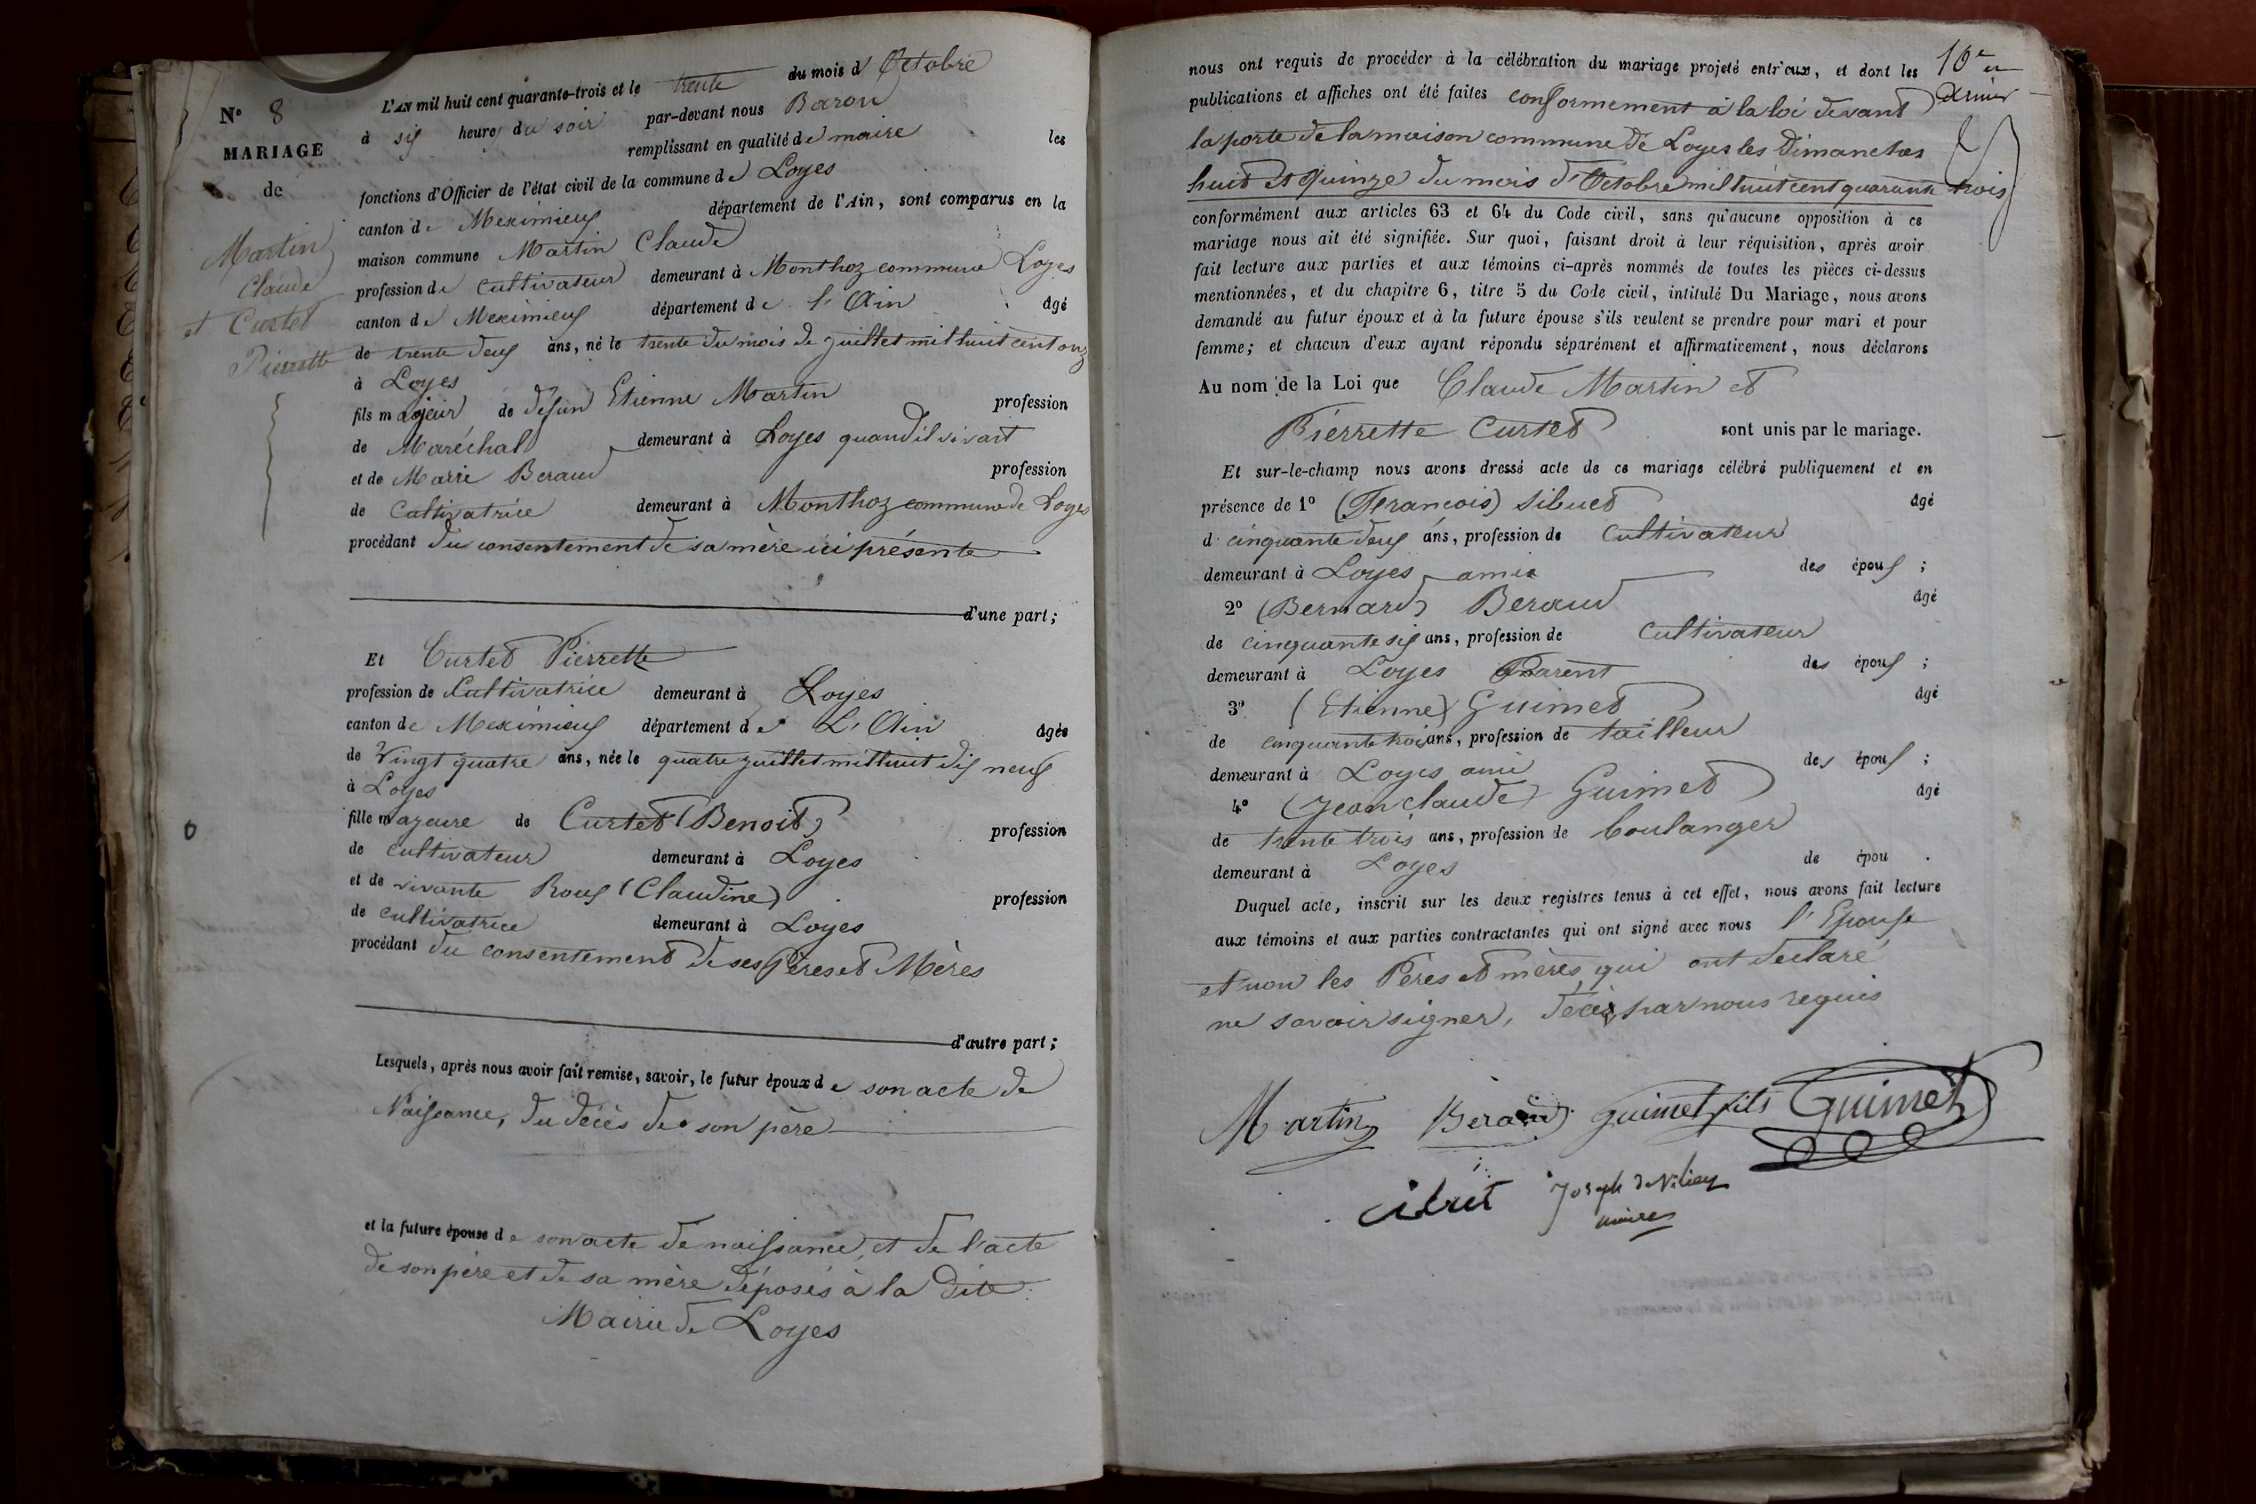 N° 8
MARIAGE
de
Martin
Claude
et Curtet
Pierrette
L'AN mil huit cent quarante-trois et le trente du mois d'Octobre
à six heures du soir par-devant nous Baron
remplissant en qualité de maire les
fonctions d'Officier de l'état civil de la commune de Loyes
canton de Meximieux département de l'Ain, sont comparus en la
maison commune Martin Claude
profession de cultivateur demeurant à Monthoz commune Loyes
canton de Meximieux département de l'Ain âgé
de trente deux ans, né le trente du mois de juillet mil huit cent onze
à Loyes
fils majeur de défun Etienne Martin profession
de Maréchal demeurant à Loyes quand il vivait
et de Marie Beraud profession
de Cultivatrice demeurant à Monthoz commune de Loyes
procédant du consentement de sa mère ici présente
d'une part;
Et Curtet Pierrette
profession de Cultivatrice demeurant à Loyes
canton de Meximieux département de L'Ain âgée
de Vingt quatre ans, née le quatre juillet mil huit dix neuf
à Loyes
fille majeure de Curtet (Benoit) profession
de cultivateur demeurant à Loyes
et de vivante Roux (Claudine) profession
de cultivatrice demeurant à Loyes
procédant du consentement de ses Pères et Mères
d'autre part;
Lesquels, après nous avoir fait remise, savoir, le futur époux de son acte de
Naissance, du décès de son père
et la future épouse de son acte de naissance, et de l'acte
de son père et de sa mère déposés à la dite
Mairie de Loyes
nous ont requis de procéder à la célébration du mariage projeté entr'eux, et dont les
publications et affiches ont été faites conformement à la loi devant
la porte de la maison commune de Loyes les Dimanches
huit et Quinze du mois d'Octobre mil huit cent quarante trois
conformément aux articles 63 et 64 du Code civil, sans qu'aucune opposition à ce
mariage nous ait été signifiée. Sur quoi, faisant droit à leur réquisition, après avoir
fait lecture aux parties et aux témoins ci-après nommés de toutes les pièces ci-dessus
mentionnées, et du chapitre 6, titre 5 du Code civil, intitulé Du Mariage, nous avons
demandé au futur époux et à la future épouse s'ils veulent se prendre pour mari et pour
femme; et chacun d'eux ayant répondu séparément et affirmativement, nous déclarons
Au nom de la Loi que Claude Martin et
Pierrette Curtet sont unis par le mariage.
Et sur-le-champ nous avons dressé acte de ce mariage célébré publiquement et en
présence de 1° (Francois) Sibuet âgé
d cinquante deux ans, profession de Cultivateur
demeurant à Loyes amis des époux ;
2° (Bernard) Beraud âgé
de cinquante six ans, profession de Cultivateur
demeurant à Loyes Parent des époux ;
3° (Etienne) Guimet âgé
de cinquante trois ans, profession de tailleur
demeurant à Loyes ami des époux ;
4° (Jean claude) Guimet âgé
de trente trois ans, profession de boulanger
demeurant à Loyes de épou .
Duquel acte, inscrit sur les deux registres tenus à cet effet, nous avons fait lecture
aux témoins et aux parties contractantes qui ont signé avec nous l'Epouse
et non les Pères et mères qui ont déclaré
ne savoir signer, par nous requis
Martin Beraud guimet fils Guimet
Joseph
maire